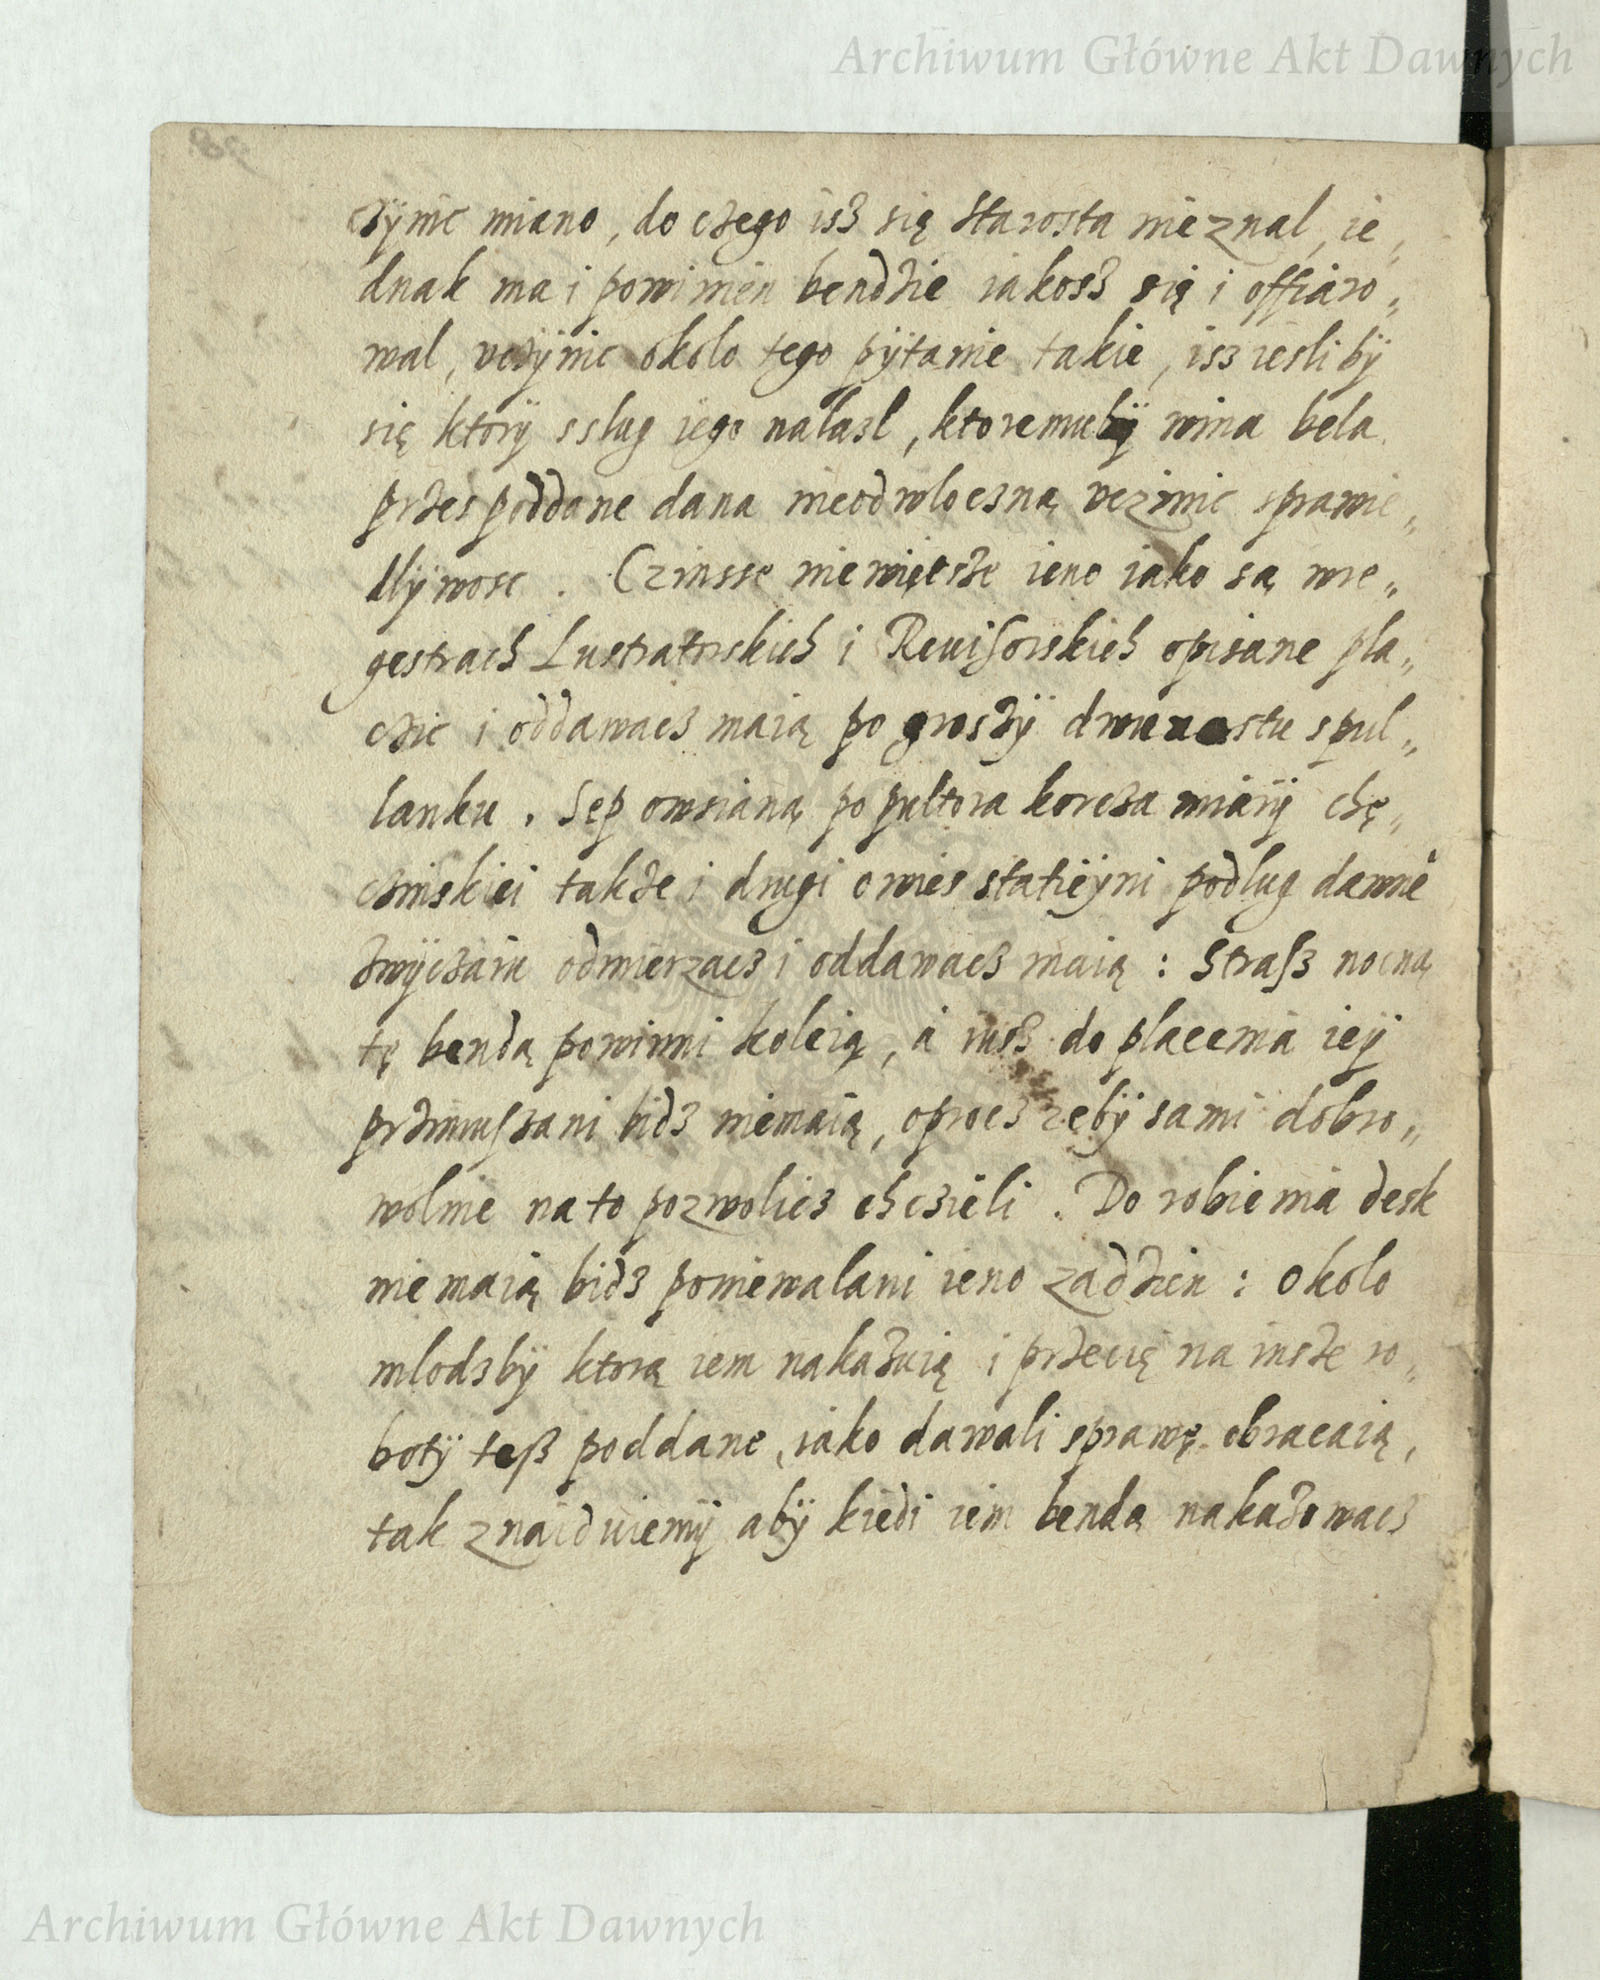 Archiwum Główne Akt Dawnych
czÿnic miano, do czego isz się starosta nieznal, ie„
dnak ma i powinien bendzie iakosz się i offiaro„
wal, vczÿnic okolo tego pÿtanie takie, isz iesli bÿ
się którÿ sslug iego nalazl, ktoremubÿ wina bela
przes poddane dana nieodwloczną vczinic sprawie„
dlÿwosc. Czinsse niewiętsze ieno iako są wre„
gestrach Lustratorskich i Reuisorskich opisane pla„
czic i oddawacz maią po groszÿ dwunastu spul„
lanku. Sep owsianą po pultora korcza miarÿ chę„
czinskiei takze i drugi owies statieÿni podlug dawne
zwÿczaiu odmierzacz i oddawacz maią: Strasz nocną
tę bendą powinni koleią, a insz do placenia ieÿ
przimuszani bidz niemaią, oprocz zebÿ sami dobro„
wolnie na to pozwolicz chczieli. Do robienia desk
nie maią bidz poniewalani ieno zadzien: okolo
mlodzbÿ ktorą iem nakazuią i przecię na insze ro„
botÿ tesz poddane, iako dawali sprawę obracaią,
tak znaiduiemÿ abÿ kiedi iem bendą nakazowacz
Archiwum Główne Akt Dawnych